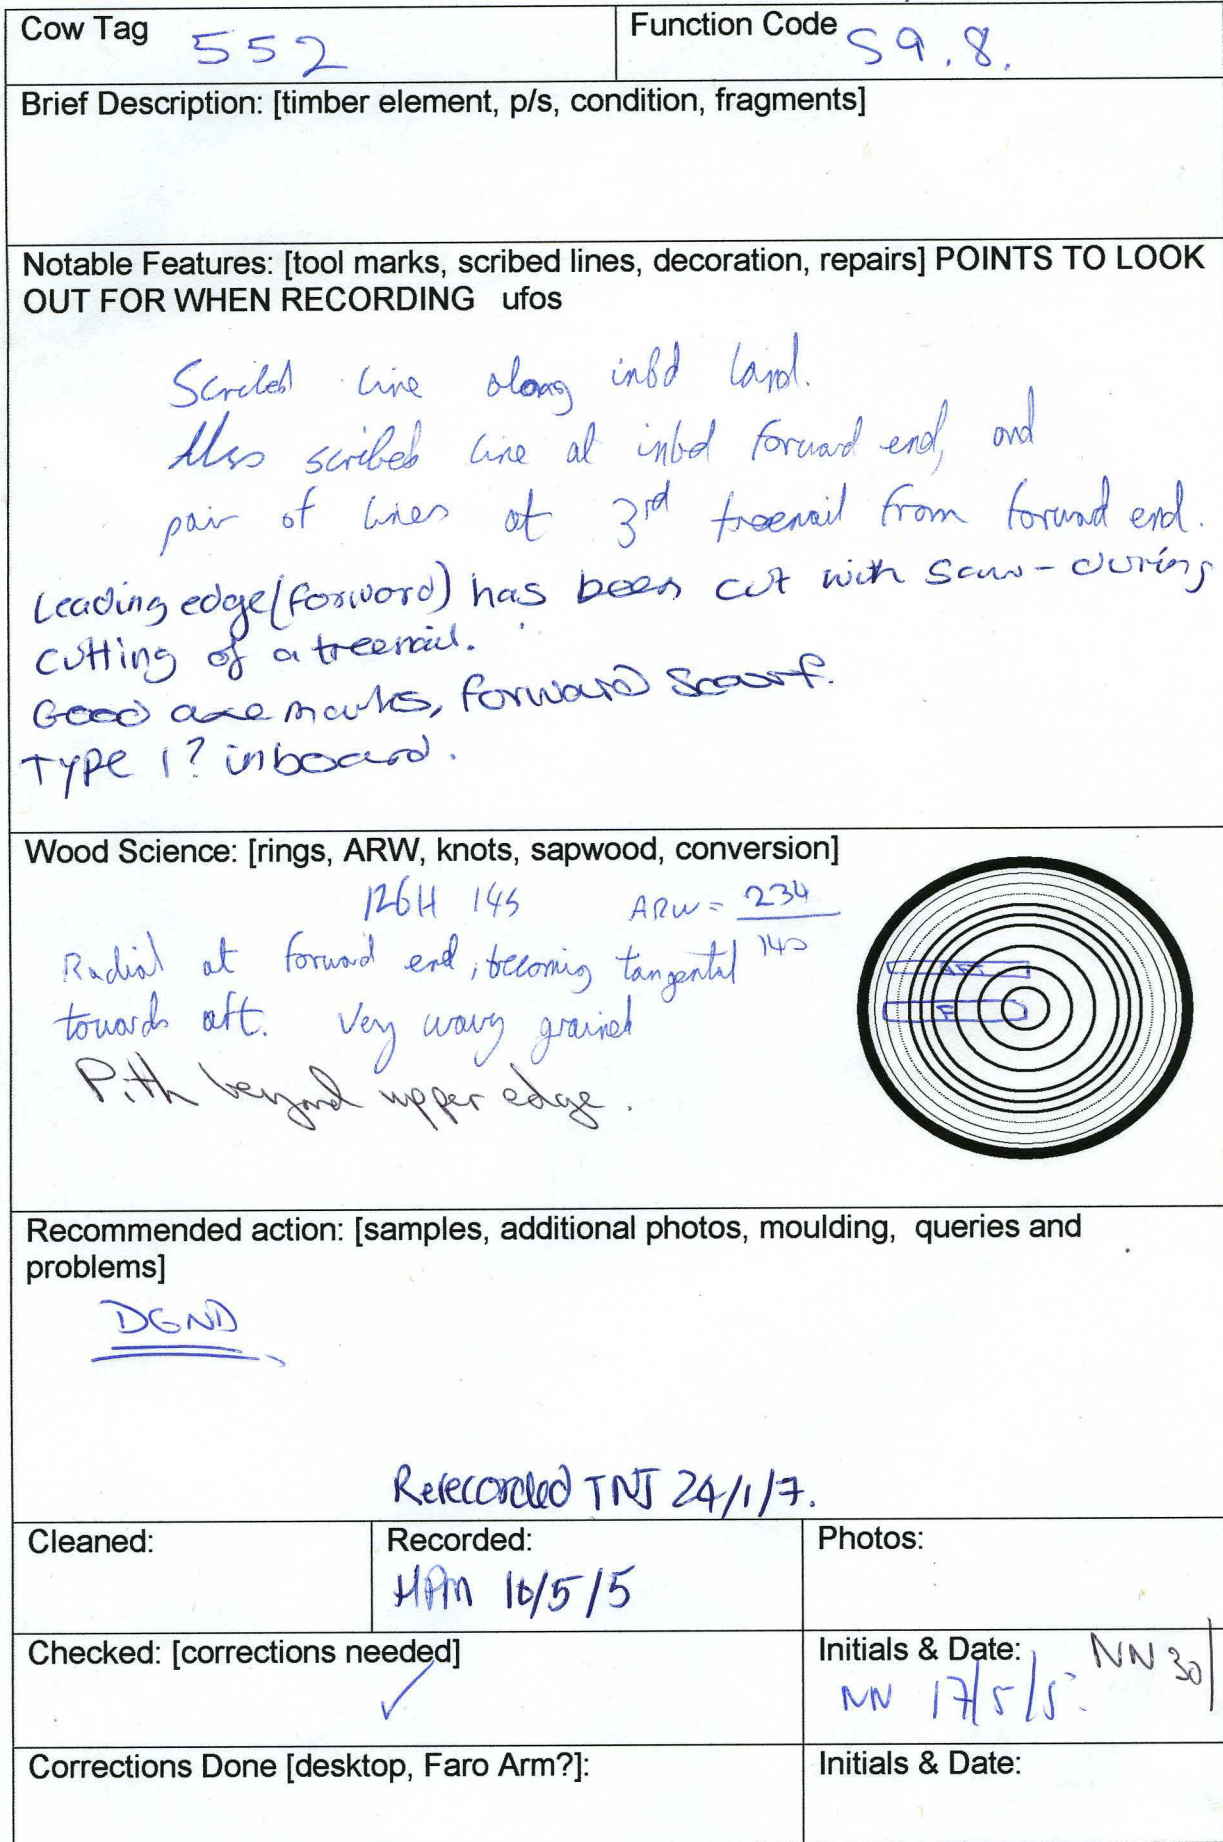 Cow Tag 552 Function Code S9.8.
Brief Description: [timber element, p/s, condition, fragments]
Notable Features: [tool marks, scribed lines, decoration, repairs] POINTS TO LOOK
OUT FOR WHEN RECORDING ufos
Scribed line along inbd land.
Also scribed line at inbd forward end, and
pair of lines at 3rd treenail from forward end.
Leading edge (forward) has been cut with saw - during
cutting of a treenail.
Good axe marks, forward scarf.
Type 1? inboard.
Wood Science: [rings, ARW, knots, sapwood, conversion]
126H 14S ARW = 234
140
Radial at forward end, becoming tangental
towards aft. Very wavy grained
Pith beyond upper edge.
AFT
F
Recommended action: [samples, additional photos, moulding, queries and
problems]
DGND
Rerecorded TNJ 24/1/7.
Cleaned: Recorded: Photos:
HPM 10/5/5
Checked: [corrections needed] Initials & Date: NN 30/
✓ NN 17/5/5.
Corrections Done [desktop, Faro Arm?]: Initials & Date: